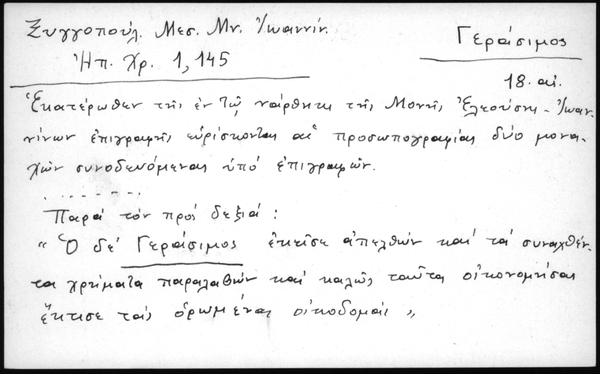 Ξυγγοπούλ. Μεσ. Μν. Ἰωαννίν.
Ἠπ. Χρ. 1, 145
Γεράσιμος
18. αἰ.
Ἑκατέρωθεν τῆς ἐν τῷ νάρθηκι τῆς Μονῆς Ἐλεούσης - Ἰωαν-
νίνων ἐπιγραφῆς εὑρίσκονται αἱ προσωπογραφίαι δύο μονα-
χῶν συνοδευόμεναι ὑπό ἐπιγραφῶν.
. . . . . - . .
Παρά τόν πρός δεξιά :
« Ὁ δέ Γεράσιμος ἐκεῖσε ἀπελθών καί τά συναχθέν-
τα χρήματα παραλαβών καί καλῶς ταῦτα οἰκονομήσας
ἔκτισε τάς ὁρωμένας οἰκοδομάς »